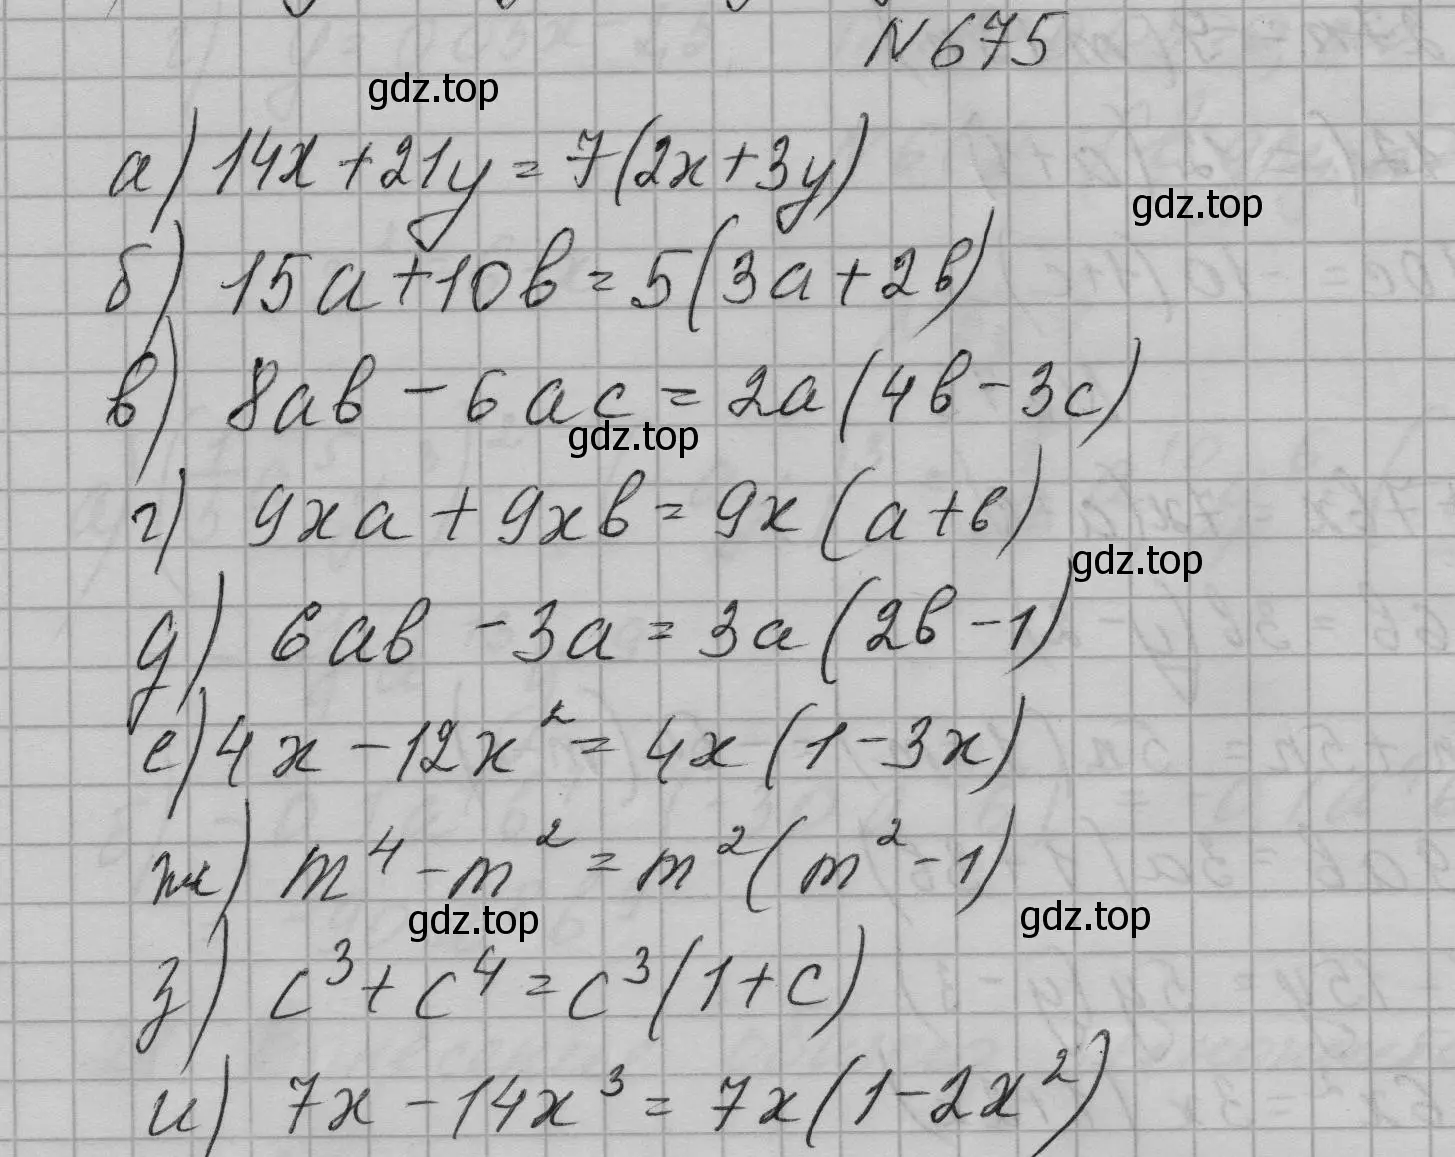 N 675
gdz.top
а) 14x + 21y = 7(2x + 3y)
gdz.top
б) 15a + 10b = 5(3a + 2b)
в) 8ab - 6ac = 2a(4b - 3c)
gdz.top
г) 9xa + 9xb = 9x(a + b)
gdz.top
д) 6ab - 3a = 3a(2b - 1)
е) 4x - 12x² = 4x(1 - 3x)
ж) m⁴ - m² = m²(m² - 1)
gdz.top gdz.top
з) c³ + c⁴ = c³(1 + c)
и) 7x - 14x³ = 7x(1 - 2x²)